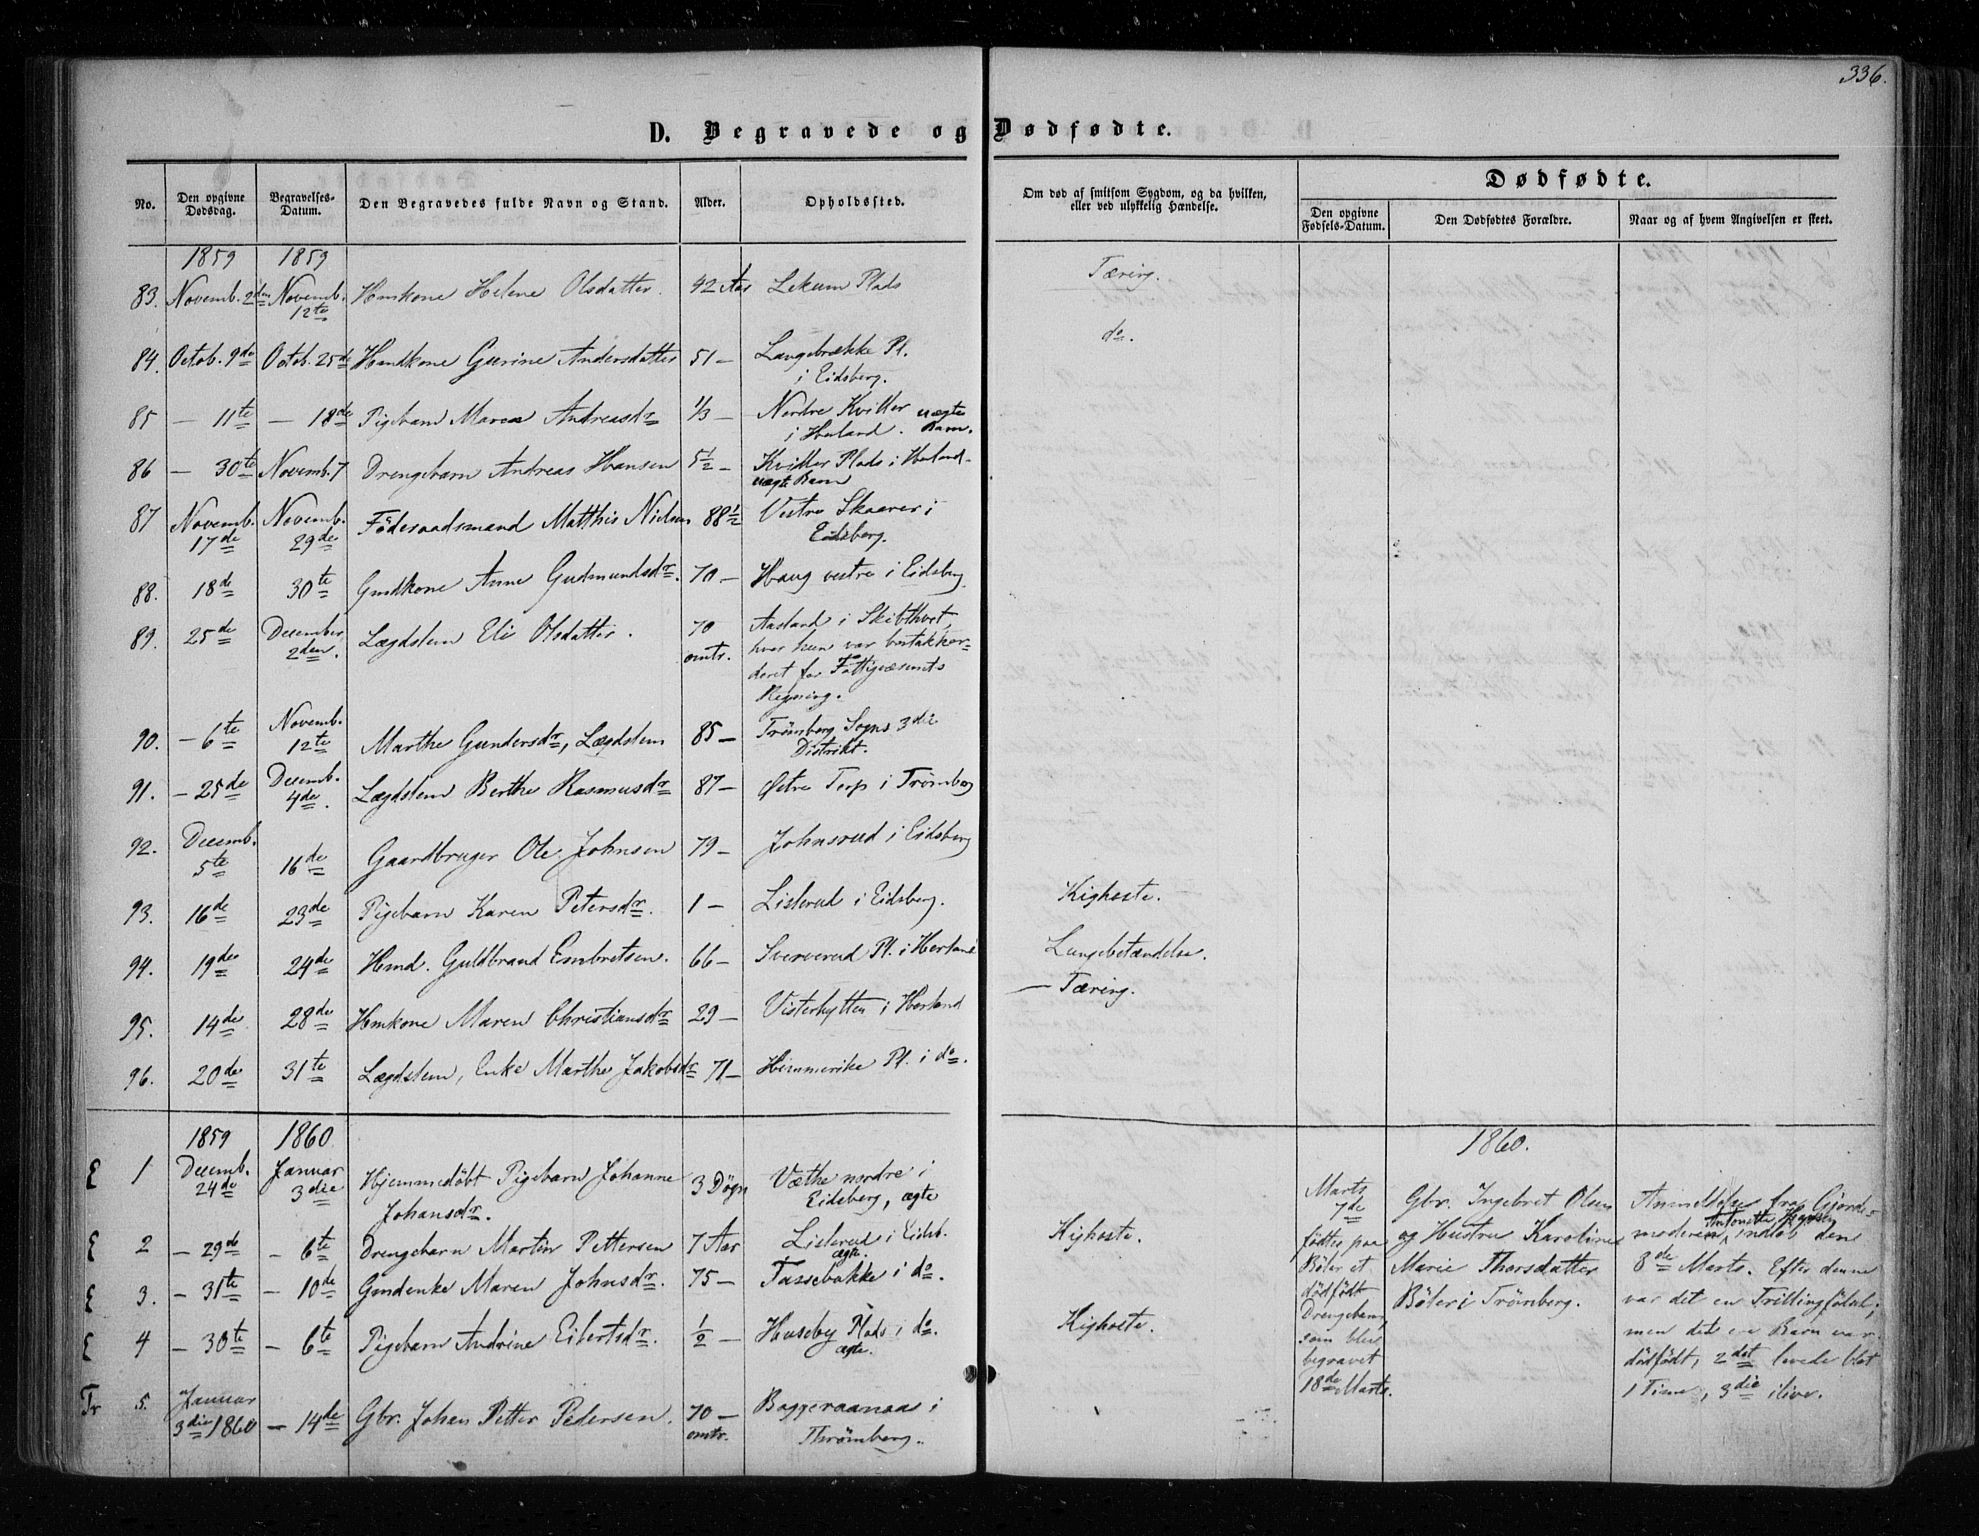 336.
D. Begravede og Dødfødte.
No.
Den opgivne Dødsdag.
Begravelses-Datum.
Den Begravedes fulde Navn og Stand.
Alder.
Opholdssted.
Om død af smitsom Sygdom, og da hvilken, eller ved ulykkelig Hændelse.
Dødfødte.
Den opgivne Fødsels-Datum.
Den Dødfødtes Forældre.
Naar og af hvem Angivelsen er skeet.
1859 1859
83. Novemb. 2den Novemb. 12te Hmkone Helene Olsdatter. 42 Aar Lekum Plads Tæring.
84. Octob. 9de Octob. 25de Hmdkone Gurine Andersdatter 51 — Langebrække Pl. i Eidsberg. do.
85 — 11te — 18de Pigebarn Maren Andreasdr 1/3 — Nordre Kviller i Herland. uægte Barn.
86 — 30te Novemb. 7 Drengebarn Andreas Hansen 5 1/2 — Kviller Plads i Herland uægte Barn
87 Novemb. 17de Novemb. 29de Föderaadsmand Matthis Nielsen 88 1/2 Vestre Skaarer i Eidsberg.
88. 18de 30te Gmdkone Anne Gudmundsdr. 70 — Haug vestre i Eidsberg.
89. 25de December 2den. Lægdslem Eli Olsdatter. 70 omtr. Aasland i Skibthvet, hvor hun var bortakkorderet for Fattigvæsenets Regning.
90. — 6te Novemb. 12te Marthe Gundersdr, Lægdslem 85 — Trömberg Sogns 3die Distrikt.
91. — 25de Decemb. 4de. Lægdslem Berthe Rasmusdr 87 — Østre Torp i Trömberg
92. Decemb. 5te 16de Gaardbruger Ole Johnsen 79 — Johnsrud i Eidsberg
93. 16de 23de Pigebarn Karen Petersdr. 1 — Listerud i Eidsberg. Kighoste.
94. 19de 24de Hmd. Guldbrand Embretsen. 66 — Sververud Pl. i Herland Lungebetændelse.
95. 14de 28de Hmkone Maren Christiansdr 29 — Visterhytten i Herland — Tæring.
96. 20de 31te Lægdslem, Enke Marthe Jakobsdr 71 — Himmerike Pl. i do.
1859 1860 1860.
E 1 Decemb. 24de Januar 3die Hjemmedöbt Pigebarn Johanne Johansdr. 3 Dögn Væthe nordre i Eidsberg, ægte
E 2 — 29de — 6te Drengebarn Martin Pettersen 7 Aar Listerud i Eidsb. ægte. Kighoste.
E 3. — 31te — 10de Gmdenke Maren Johnsdr. 75 — Tassebakke i do.
E 4 — 30te — 6te Pigebarn Andrine Eibertsdr. 1/2 — Huseby Plads i do. ægte. Kighoste.
Tr 5. Januar 3die 1860 — 14de Gbr. Johan Petter Pedersen. 70 — omtr. i Thrömberg.
Marts 7de
födtes paa
Böler et
dödfödt
Drengebarn
som blev
begravet
18de Marts.
Gbr. Ingebret Olsen
og Hustru Karoline
Marie Thorsdatter
Böler i Trömberg.
Anmeldelse fra Gjorde-
moderen, Antonette indlöb den
8de Marts. Efter denne
var det en Trillingfödsel;
men det ene Barn var
dödfödt, 2det levede blot
1 Time, 3die ilive.